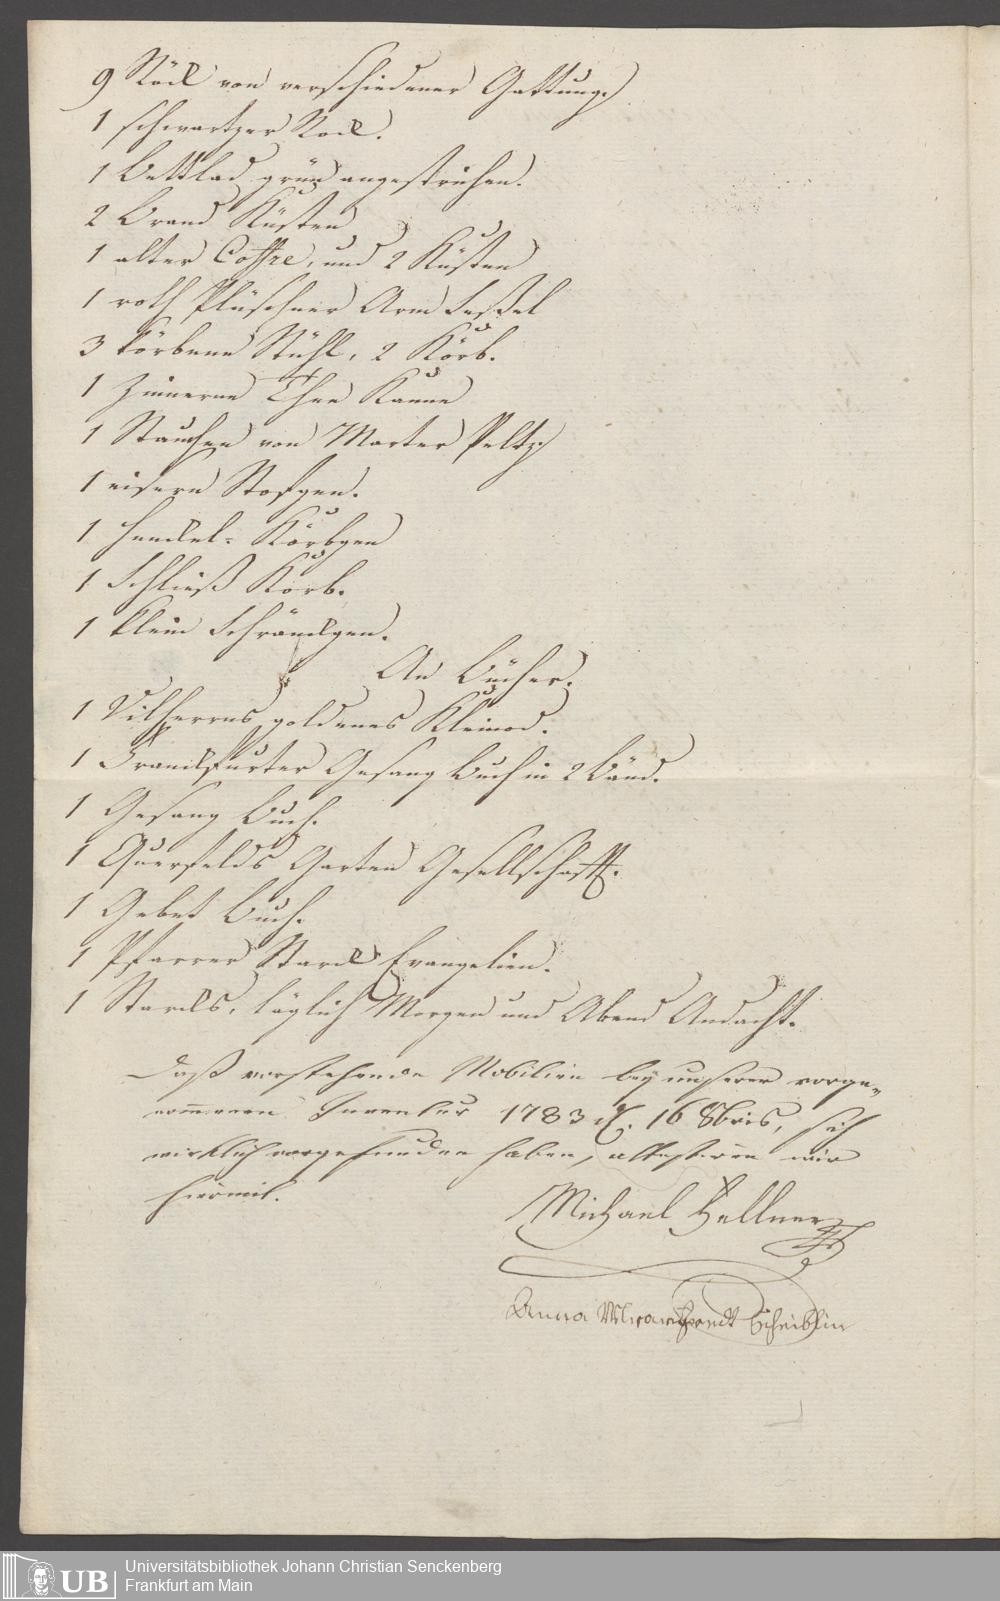 9 Röck von verschiedener Gattung.
1 schwartzer Rock.
1 Bettlad grün angestrichen.
2 Brand Küsten
1 alter Coffre, und 2 Küsten
1 roth Plüschner Arm Seßel
3 körbene Stühl, 2 Körb.
1 Zinnerne Thee Kanne
1 Stauchen von Marter Peltz
1 eisern Stofgen.
1 Henckel-Körbgen
1 Schließ Korb.
1 klein Schränckgen.
An Bücher.
1 goldenes Kleinod.
1 Franckfurter Gesang Buch in 2 Bänd.
1 Gesang Buch.
1 Querfelds Garten Gesellschafft.
1 Gebet Buch.
1 Pfarrer Starck Evangelien.
1 Starcks, täglich Morgen und Abend Andacht.
Daß vorstehende Mobilien bey unserer vorge-
nommenen Inventur 1783 d. 16 8bris, sich
wirklich vorgefunden haben, attestiren wir
hiermit.
Michael Hellner
Anna Scheiblin
Universitätsbibliothek Johann Christian Senckenberg
Frankfurt am Main
UB